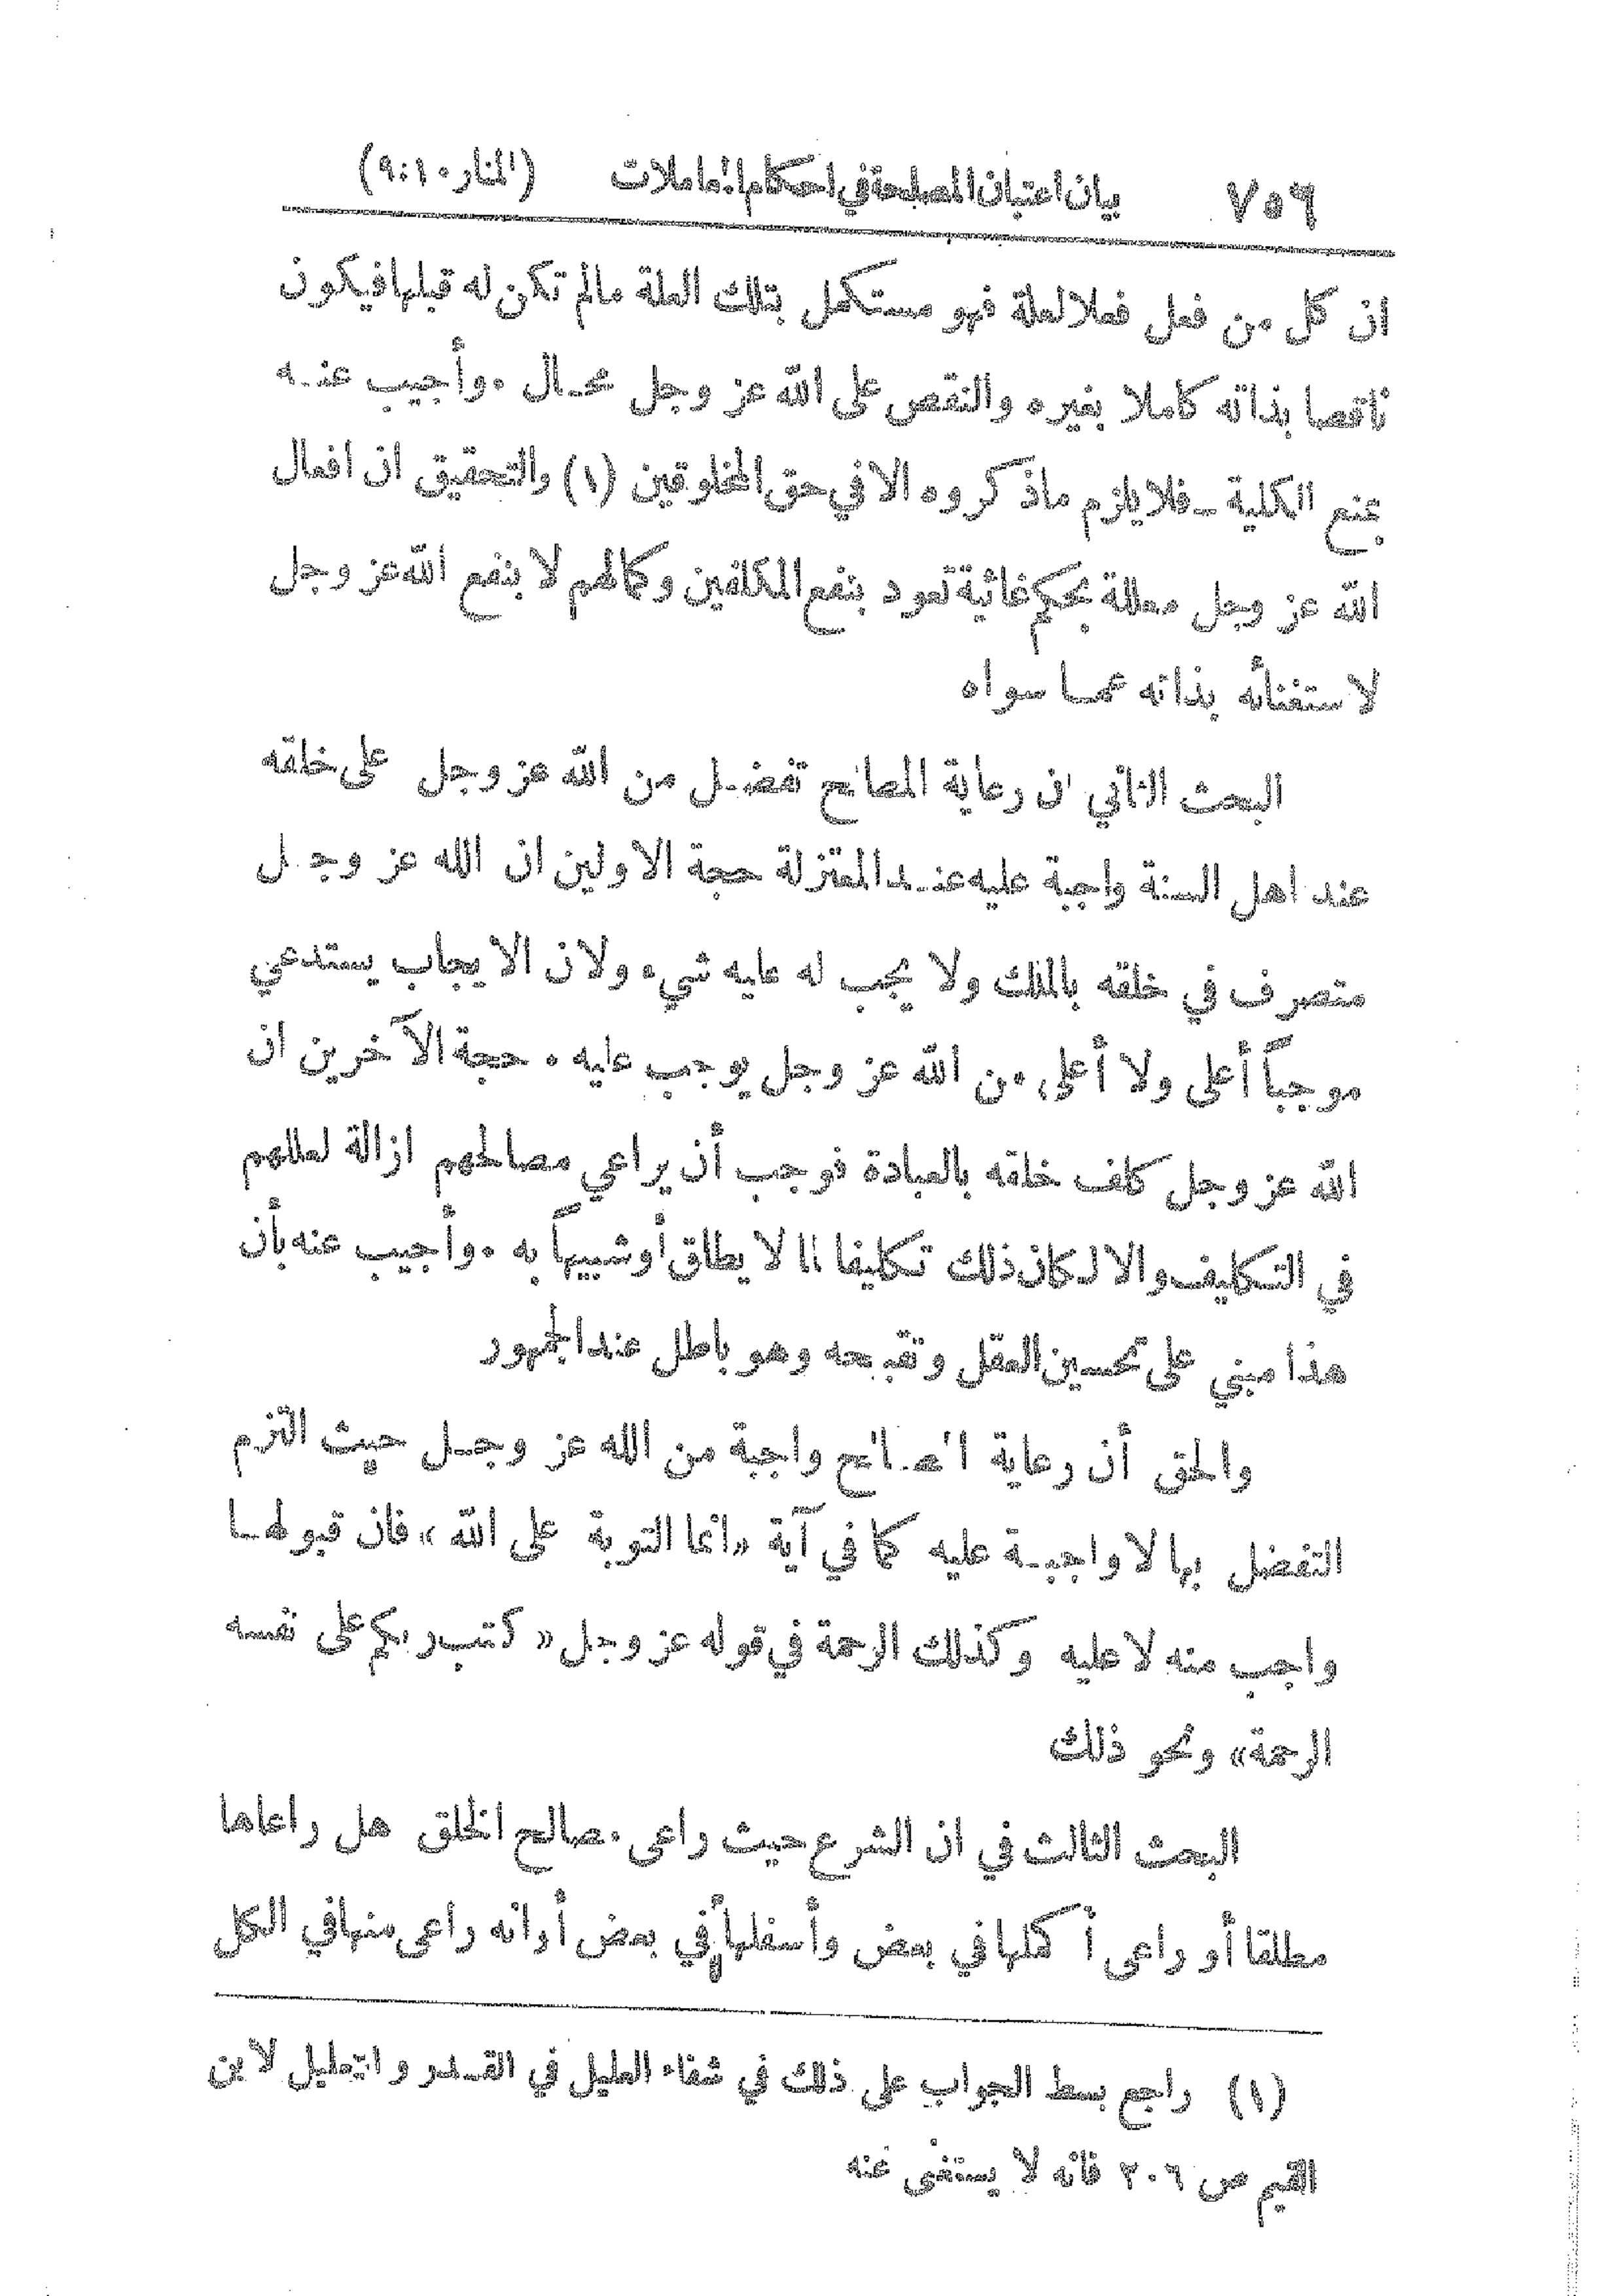 ٧٥٦ بيان اعتبار المصلحة في احكام المعاملات (المنار ١٠:٩)
ان كل من فعل فعلا لعلة فهو مستكمل بتلك العلة مالم تكن له قبلها فيكون
ناقصا بذاته كاملا بغيره والنقص على الله عز وجل محال ٠ وأجيب عنه
بمنع الكلية ـ فلا يلزم ماذكروه الا في حق المخلوقين (١) والتحقيق ان افعال
الله عز وجل معللة بحكم غائية تعود بنفع المكلفين وكمالهم لا بنفع الله عز وجل
لاستغنائه بذاته عما سواه
البحث الثاني ان رعاية المصالح تفضل من الله عز وجل على خلقه
عند اهل السنة واجبة عليه عند المعتزلة حجة الاولين ان الله عز وجل
متصرف في خلقه بالملك ولا يجب له عليه شيء ولان الايجاب يستدعي
موجباً أعلى ولا أعلى من الله عز وجل يوجب عليه ٠ حجة الآخرين ان
الله عز وجل كلف خلقه بالعبادة فوجب أن يراعي مصالحهم ازالة لعللهم
في التكليف والا لكان ذلك تكليفا لما لا يطاق أو شبيهاً به ٠ وأجيب عنه بأن
هذا مبني على تحسين العقل وتقبيحه وهو باطل عند الجمهور
والحق أن رعاية المصالح واجبة من الله عز وجل حيث التزم
التفضل بها لا واجبة عليه كما في آية «انما التوبة على الله» فان قبولها
واجب منه لا عليه وكذلك الرحمة في قوله عز وجل «كتب ربكم على نفسه
الرحمة» ونحو ذلك
البحث الثالث في ان الشرع حيث راعى مصالح الخلق هل راعاها
مطلقا أو راعى أكملها في بعض وأسفلها في بعض أو انه راعى منها في الكل
(١) راجع بسط الجواب على ذلك في شفاء العليل في القدر والتعليل لابن
القيم ص ٢٠٦ فانه لا يستغنى عنه